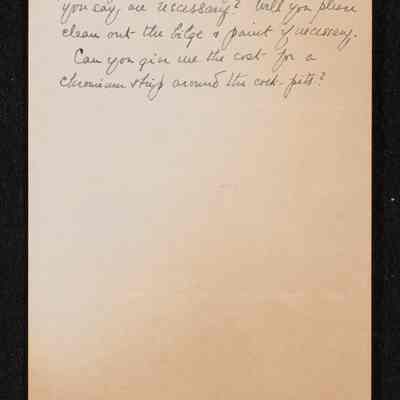 you say are necessary? Will you please
clean out the bilge & paint if necessary.
Can you give me the cost for a
chromium strip around the cock-pits?